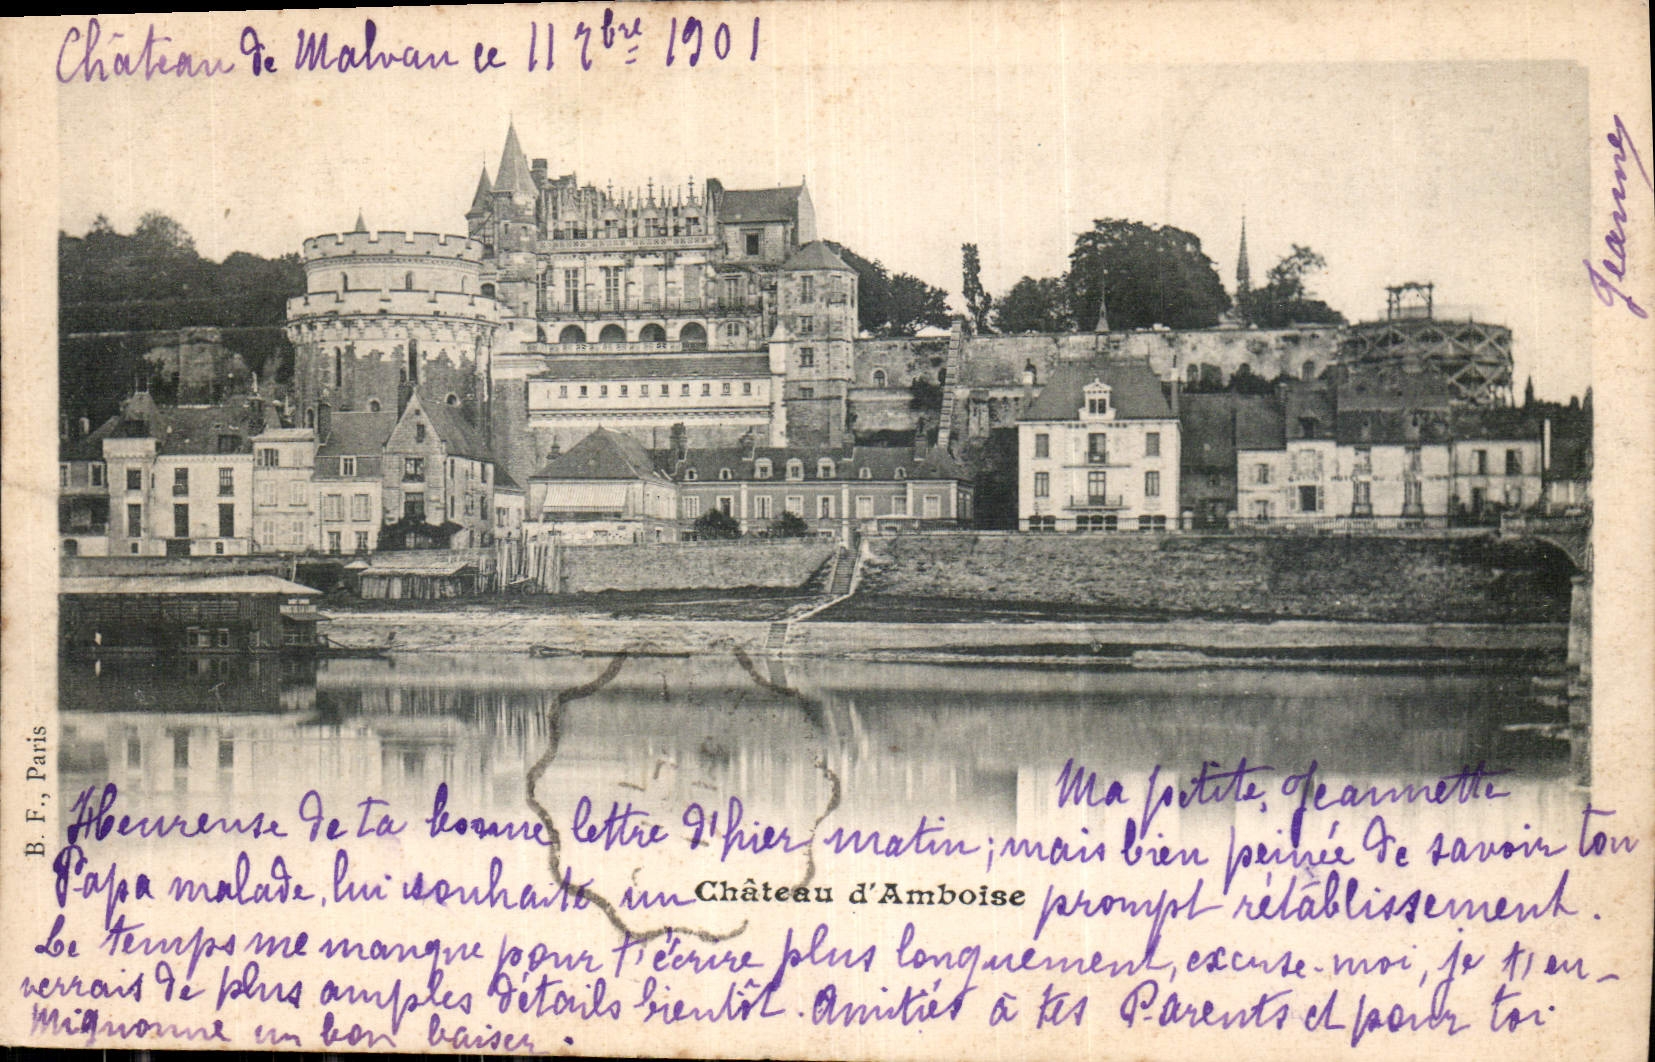 Château de Malvau ce 11 7bre 1901
Jeanne
B. F., Paris
Ma petite Jeannette
Heureuse de ta bonne lettre d'hier matin; mais bien peinée de savoir ton
Papa malade, lui souhaite un prompt rétablissement.
Château d'Amboise
Le temps me manque pour t'écrire plus longuement, excuse-moi, je t'en-
verrais de plus amples détails bientôt. Amitiés à tes Parents et pour toi
Mignonne un bon baiser.